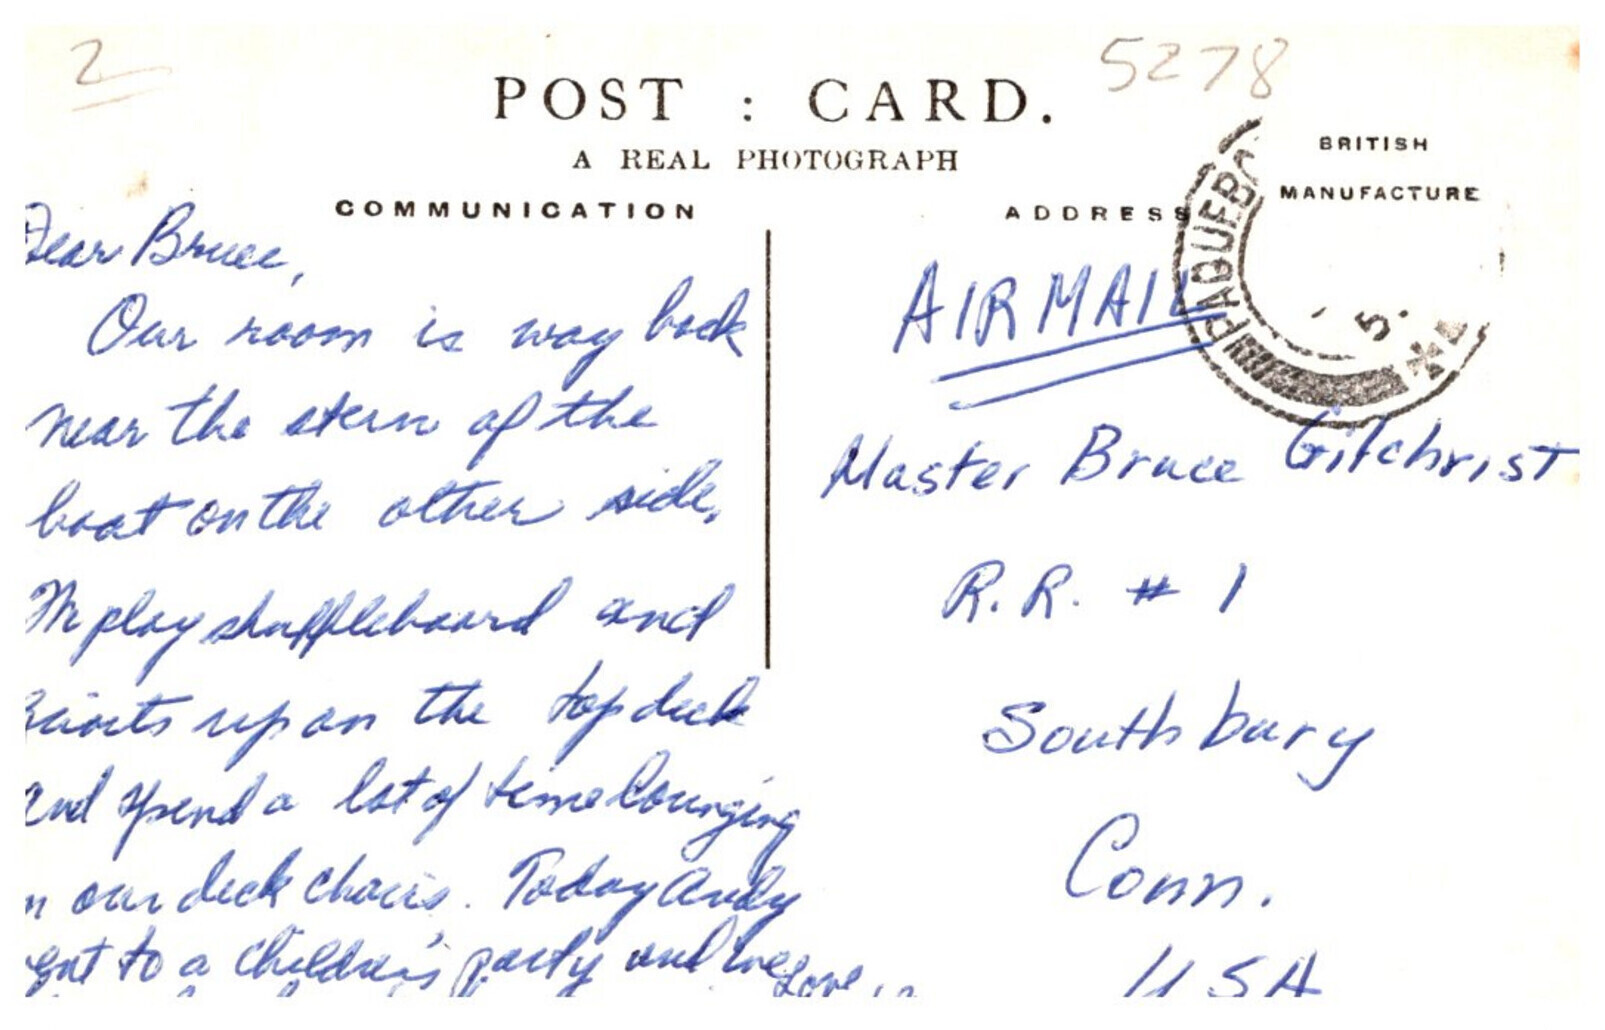 2
5278
POST : CARD.
A REAL PHOTOGRAPH
BRITISH
MANUFACTURE
COMMUNICATION
ADDRESS
PAQUEBO
5.
Dear Bruce,
Our room is way back
near the stern of the
boat on the other side.
We play shuffleboard and
quoits up on the top deck
and spend a lot of time lounging
in our deck chairs. Today Andy
went to a children's party and we
Love,
AIR MAIL
Master Bruce Gilchrist
R.R. # 1
Southbury
Conn.
USA